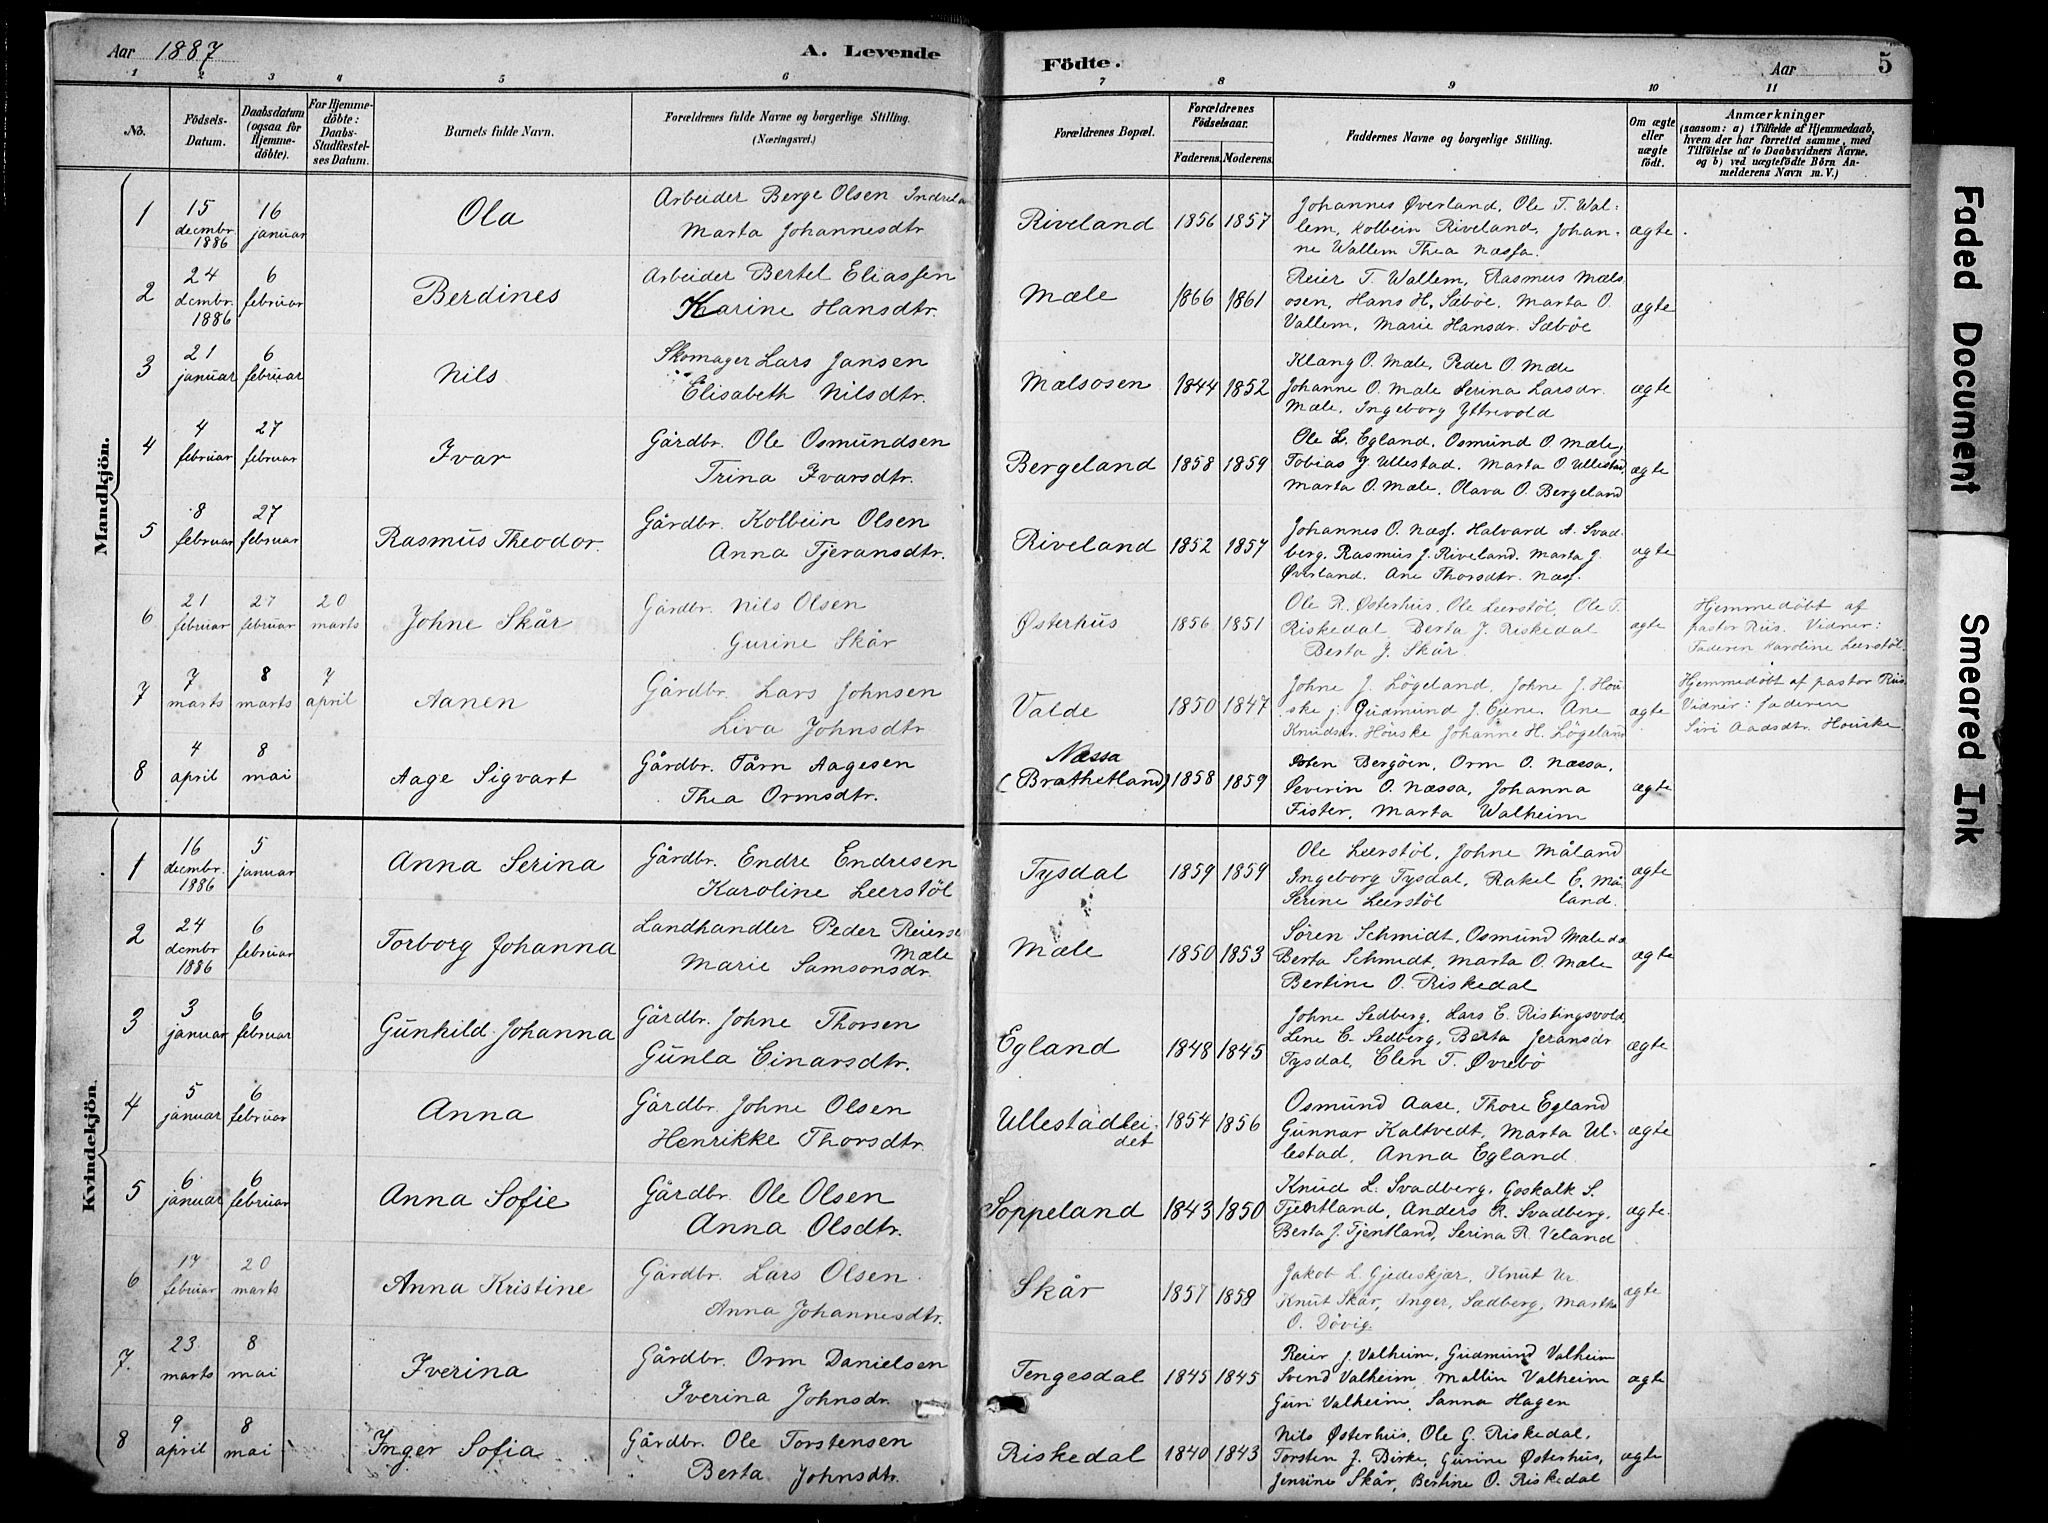 Aar 1887
A. Levende
Födte.
Aar
5
1 2 3 4 5 6 7 8 9 10 11
No.
Födsels-Datum.
Daabsdatum (ogsaa for Hjemme-döbte).
For Hjemme-döbte: Daabs-Stadfæstel-ses Datum.
Barnets fulde Navn.
Forældrenes fulde Navne og borgerlige Stilling. (Næringsvei.)
Forældrenes Bopæl.
Forældrenes Födselsaar.
Faderens. Moderens.
Faddernes Navne og borgerlige Stilling.
Om ægte eller uægte födt.
Anmærkninger
(saasom: a) i Tilfælde af Hjemmedaab, hvem der har forrettet samme, med Tilföielse af to Daabsvidners Navne, og b) ved uægtefödte Börn An-melderens Navn m. V.)
Mandkjön.
1 15 decmbr. 1886 16 januar Ola
Arbeider Berge Olsen
Marta Johannesdtr.
Riveland 1856 1857
Johannes Øverland, Ole T. Wal-
lem, Kolbein Riveland, Johan-
ne Wallem Thea Næssa.
ægte
2 24 dcmbr. 1886 6 februar Berdines
Arbeider Bertel Eliassen
Karine Hansdtr.
Mæle 1866 1861
Reier T. Wallem, Rasmus Mæls-
osen, Hans H. Sæbøe, Marta O
Vallem, Marie Hansdr. Sæbøe
ægte
3 21 januar 6 februar Nils
Skomager Lars Jansen
Elisabeth Nilsdtr.
Mælsosen 1844 1852
Klang O. Mæle, Peder O. Mæle
Johanne O. Mæle Serina Larsdr.
Mæle, Ingeborg Yttrevold
ægte
4 4 februar 27 februar Ivar
Gårdbr. Ole Osmundsen
Trina Ivarsdtr.
Bergeland 1858 1859
Ole L. Egland, Osmund O. Mæle,
Tobias J. Ullestad. Marta O Ullestad,
Marta O. Mæle, Olava O. Bergeland
ægte
5 8 februar 27 februar Rasmus Theodor.
Gårdbr. Kolbein Olsen
Anna Tjeransdtr.
Riveland 1852 1857
Johannes O. Næsf. Halvard A. Svad-
berg, Rasmus J. Riveland. Marta J.
Øverland. Ane Thorsdtr. Næsf.
ægte
6 21 februar 27 februar 20 marts Johne Skår
Gårdbr. Nils Olsen
Gurine Skår
Østerhus 1856 1851
Ole R. Østerhus, Ole Leerstøl, Ole T.
Riskedal Berta J. Riskedal
Berta J. Skår.
ægte
Hjemmedøbt af
pastor Riis. Vidner:
Faderen Karoline Leerstøl.
7 7 marts 8 marts 7 april Aanen
Gårdbr. Lars Johnsen
Liva Johnsdtr
Valde 1850 1847
Johne J. Løgeland, Johne J. Hou-
ske, Gudmund J. Ejene. Ane
Knudsdr. Houske Johanne H. Løgeland
ægte
Hjemmedøbt af pastor Riis
Vidner: faderen
Siri Aadsdtr. Houske
8 4 april 8 mai Aage Sigvart
Gårdbr. Tårn Aagesen
Thea Ormsdtr.
Næssa
(Brathetland) 1858 1859
Bergøen, Orm O. Næssa,
Severin O. Næssa, Johanna
Fister, Marta Walheim
ægte
Kvindekjön.
1 16 decmbr. 1886 5 januar Anna Serina
Gårdbr. Endre Endresen
Karoline Leerstøl
Tysdal 1859 1859
Ole Leerstøl, Johne Måland
Ingeborg Tysdal, Rakel E. Må-
Serine Leerstøl land.
ægte
2 24 dcmbr 1886 6 februar Torborg Johanna
Landhandler Peder Reierse
Mæle
Marie Samsonsdr.
Mæle 1850 1853
Søren Schmidt, Osmund Mæle
Berta Schmedt, Marta O. Mæle
Bertine O. Riskedal
ægte
3 3 januar 6 februar Gunhild Johanna
Gårdbr. Johne Thorsen
Gunla Einarsdtr.
Egland 1848 1845
Johne Sedberg, Lars E. Ristingsvold
Lene E. Sedberg, Berta Jeransdr
Tysdal, Elen T. Øvrebø
ægte
4 5 januar 6 februar Anna
Gårdbr. Johne Olsen
Henrikke Thorsdtr.
Ullestadlei-
det 1854 1856
Osmund Aase, Thore Egland
Gunnar Kaltvedt, Marta Ul-
lestad, Anna Egland
ægte
5 6 januar 6 februar Anna Sofie
Gårdbr. Ole Olsen
Anna Olsdtr.
Soppeland 1843 1850
Knud L. Svadberg, Goskalk S.
Tjentland, Anders R. Svadberg,
Berta J. Tjentland, Serina R. Veland
ægte
6 17 februar 20 marts Anna Kristine
Gårdbr. Lars Olsen
Anna Johannesdtr.
Skår 1857 1858
Jakob L. Gjedeskjær, Knut
Knut Skår, Inger, Sædberg, Martha
O. Døvig.
ægte
7. 23 marts 8 mai Iverina
Gårdbr. Orm Danielsen
Iverina Johnsdr.
Tengesdal 1845 1845
Reier J. Valheim, Gudmund Valheim
Svend Valheim, Mallin Valheim
Guri Valheim, Sanna Hagen
ægte
8 9 april 8 mai Inger Sofia
Gårdbr. Ole Torstensen
Berta Johnsdtr.
Riskedal 1840 1843
Nils Østerhus, Ole G. Riskedal,
Torsten J. Birke, Gurine Østerhus,
Jensine Skår, Bertine O. Riskedal
ægte
Faded Document
Smeared Ink